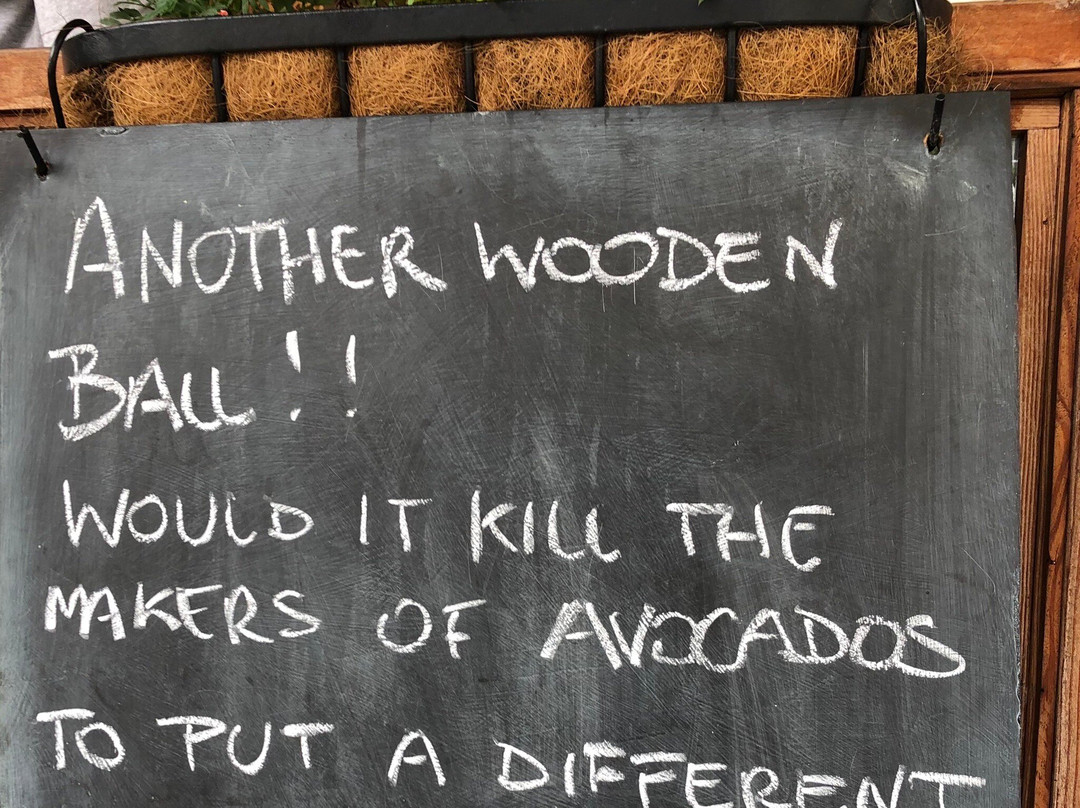 ANOTHER WOODEN
BALL!!
WOULD IT KILL THE
MAKERS OF AVOCADOS
TO PUT A DIFFERENT